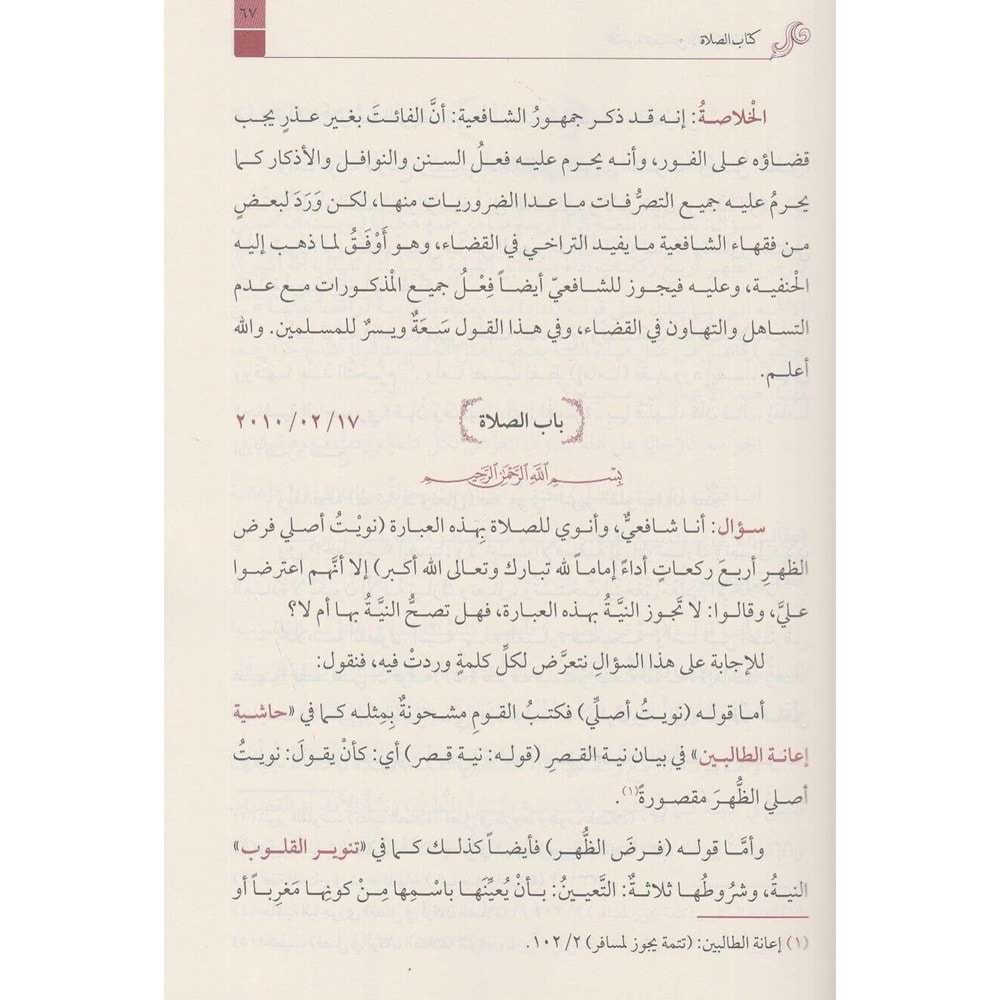 ٦٧
كتاب الصلاة
الْخلاصةُ: إنه قد ذكر جمهورُ الشافعية: أنَّ الفائتَ بغير عذرٍ يجب
قضاؤه على الفور، وأنه يحرم عليه فعلُ السنن والنوافل والأذكار كما
يحرمُ عليه جميع التصرُّفات ما عدا الضروريات منها، لكن وَرَدَ لبعضٍ
من فقهاء الشافعية ما يفيد التراخي في القضاء، وهو أَوْفَقُ لما ذهب إليه
الْحنفية، وعليه فيجوز للشافعيّ أيضاً فِعْلُ جميع الْمذكورات مع عدم
التساهل والتهاون في القضاء، وفي هذا القول سَعَةٌ ويسرٌ للمسلمين. والله
أعلم.
باب الصلاة
٢٠١٠/٠٢/١٧
بِسْمِ اللَّهِ الرَّحْمَٰنِ الرَّحِيمِ
سؤال: أنا شافعيٌّ، وأنوي للصلاة بِهذه العبارة (نويْتُ أصلي فرض
الظهرِ أربعَ ركعاتٍ أداءً إماماً لله تبارك وتعالى الله أكبر) إلا أنَّهم اعترضوا
عليَّ، وقالوا: لا تَجوز النيَّةُ بهذه العبارة، فهل تصحُّ النيَّةُ بها أم لا؟
للإجابة على هذا السؤالِ نتعرَّض لكلِّ كلمةٍ وردتْ فيه، فنقول:
أما قوله (نويتُ أصلِّي) فكتبُ القومِ مشحونةٌ بِمِثله كما في «حاشية
إعانة الطالبين» في بيان نية القصرِ (قوله: نية قصر) أي: كأنْ يقولَ: نويتُ
أصلي الظُّهرَ مقصورةً(١).
وأمَّا قوله (فرضَ الظُّهر) فأيضاً كذلك كما في «تنوير القلوب»
النيةُ، وشرُوطُها ثلاثةٌ: التَّعيينُ: بأنْ يُعيِّنَها باسْمِها مِنْ كونِها مَغرِباً أو
(١) إعانة الطالبين: (تتمة يجوز لمسافر) ١٠٢/٢.